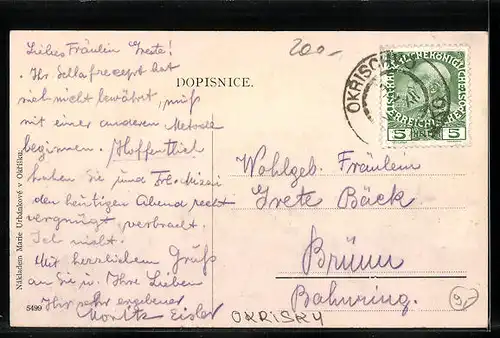 200.-
Liebes Fräulein Grete!
Ihr Schlafrecept hat
sich nicht bewährt, muß
mit einer anderen Methode
beginnen. Hoffentlich
haben Sie und Frl.
den heutigen Abend recht
vergnügt verbracht.
Ich nicht.
Mit herzlichem Gruß
an Sie u. Ihre Lieben
Ihr sehr ergebener
Moritz Eisler
DOPISNICE.
Nákladem Marie Urbánkové v Okříšku.
5499
OKRISCH
5 5
Wohlgeb. Fräulein
Grete Bäck
Brünn
Bahnring.
OKRISKY
9.-